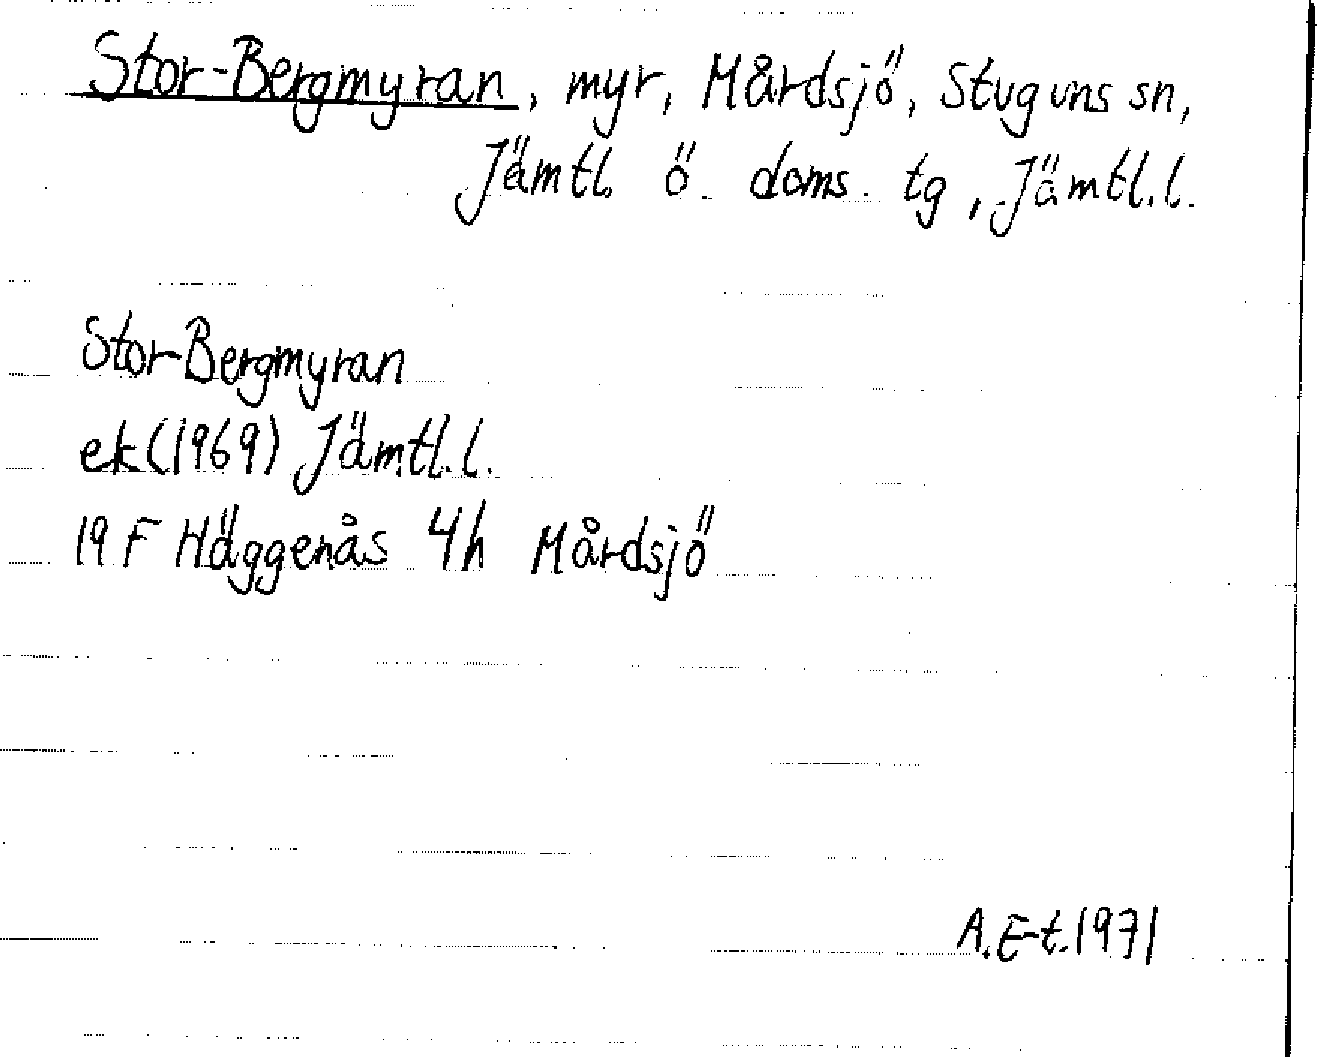 Stor-Bergmyran, myr, Mårdsjö, Stuguns sn,
Jämtl. ö. doms. tg, Jämtl.l.
Stor-Bergmyran
ek (1969) Jämtl.l.
19 F Häggenås 4h Mårdsjö
A.E-t.1971